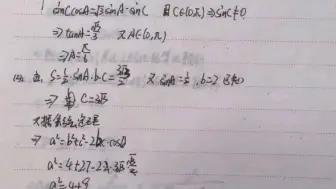 sinCcosA=√3 sinA·sinC 且C∈(0,π)⇒sinC≠0
⇒ tanA=√3/3 又A∈(0,π)
⇒A=π/6
由, S=1/2 sinA·b·C=3√3/2 又 sinA=1/2, b=2
⇒ C=3√3
⇒ a²=b²+c²-2bc·cosA
⇒ a²=4+27-2·2·3√3·√3/2
a²=4+9